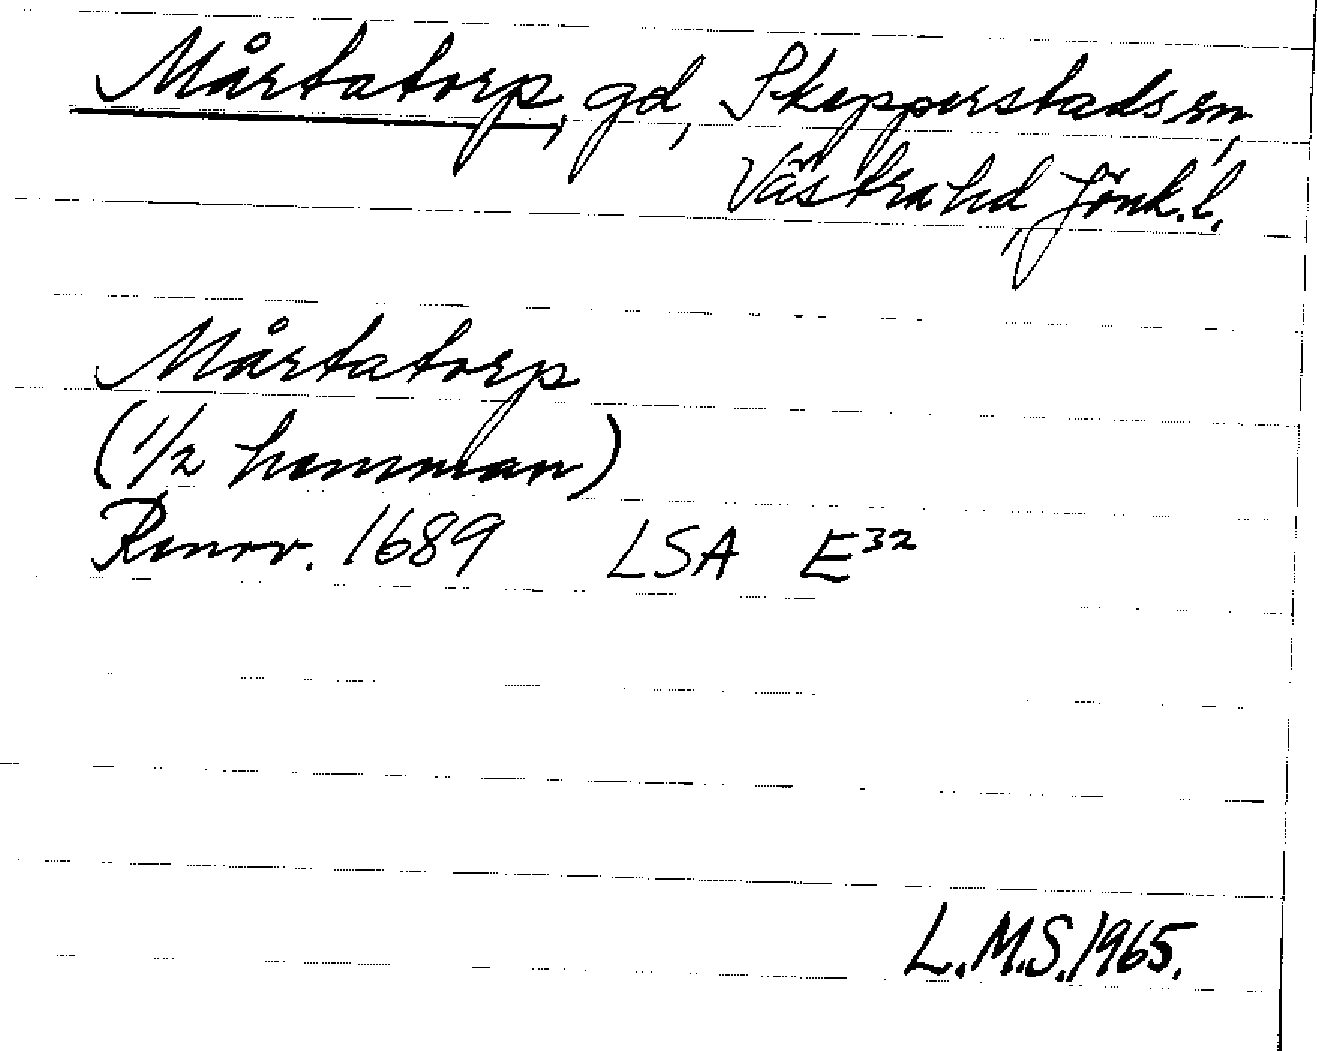 Mårtatorp, gd, Skepperstads sn,
Västra hd, Jönk.l.
Mårtatorp
(1/2 hemman)
Renov. 1689 LSA E³²
L.M.S. 1965.